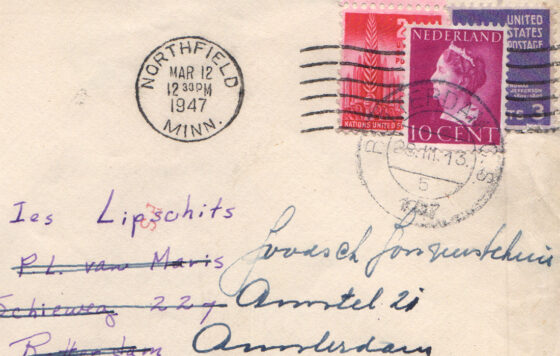 NORTHFIELD
MAR 12
12 30 PM
1947
MINN.
NEDERLAND
10 CENT
UNITED
STATES
POSTAGE
NATIONS UNITED
3
28.III.13
5
1947
Ies Lipschits
P.L. van Maris
Schieweg 227
Rotterdam
Joodsch
Amstel 21
Amsterdam